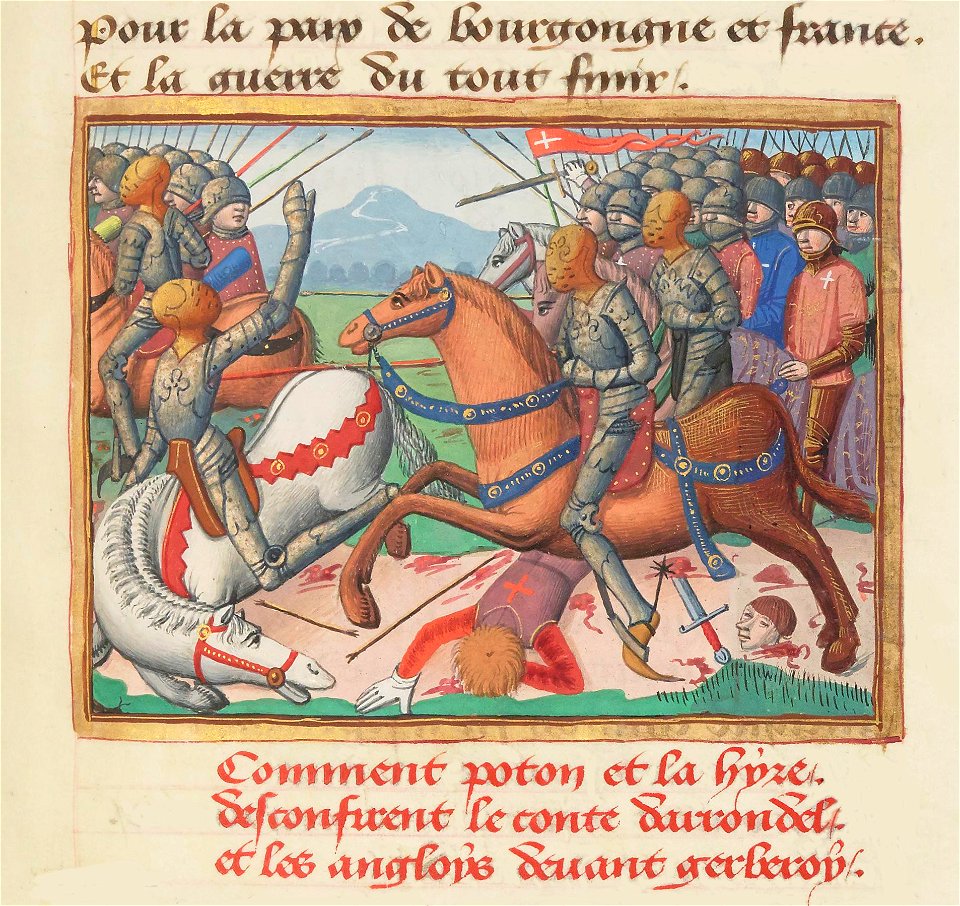 Pour la paix de bourgongne et france.
Et la guerre du tout finir/.
Comment poton et la hyre.
desconfirent le conte darrondel.
et les angloys devant gerberoy/.